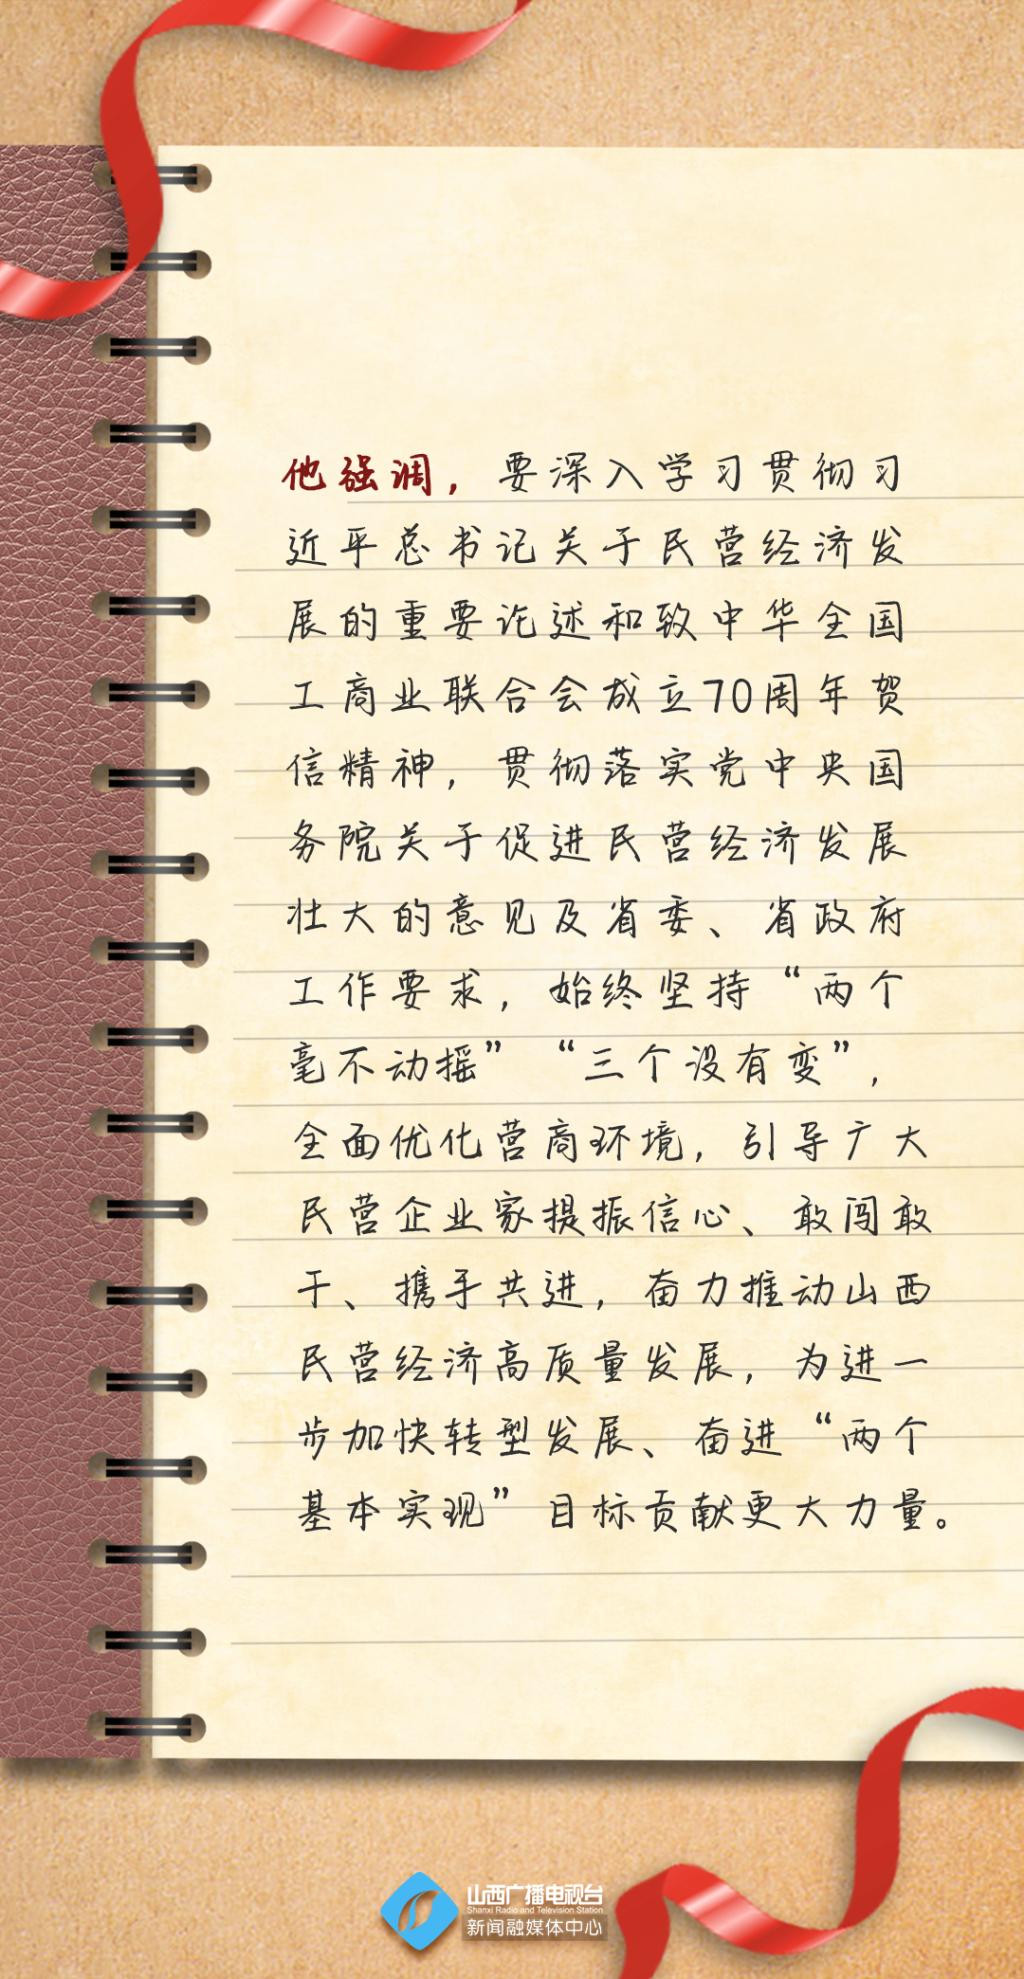 他强调，要深入学习贯彻习
近平总书记关于民营经济发
展的重要论述和致中华全国
工商业联合会成立70周年贺
信精神，贯彻落实党中央国
务院关于促进民营经济发展
壮大的意见及省委、省政府
工作要求，始终坚持“两个
毫不动摇”“三个没有变”，
全面优化营商环境，引导广大
民营企业家提振信心、敢闯敢
干、携手共进，奋力推动山西
民营经济高质量发展，为进一
步加快转型发展、奋进“两个
基本实现”目标贡献更大力量。
山西广播电视台
Shanxi Radio and Television Station
新闻融媒体中心